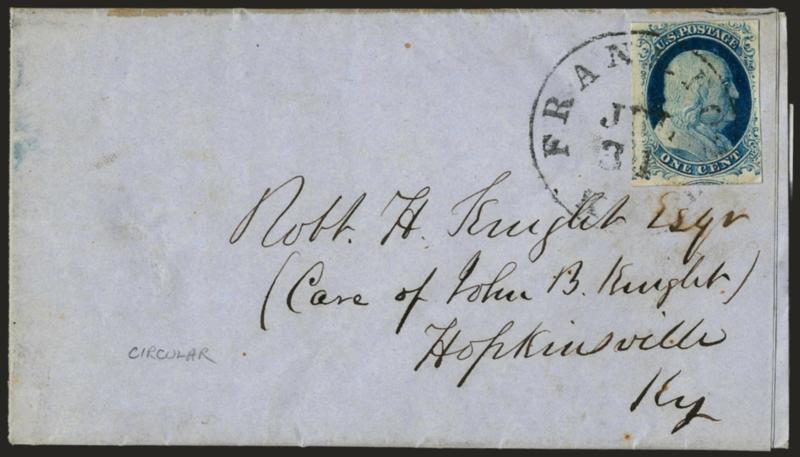 U.S. POSTAGE
ONE CENT
FRAN
31
Robt. H. Knight Esqr
(Care of John B. Knight)
Hopkinsville
Ky
CIRCULAR